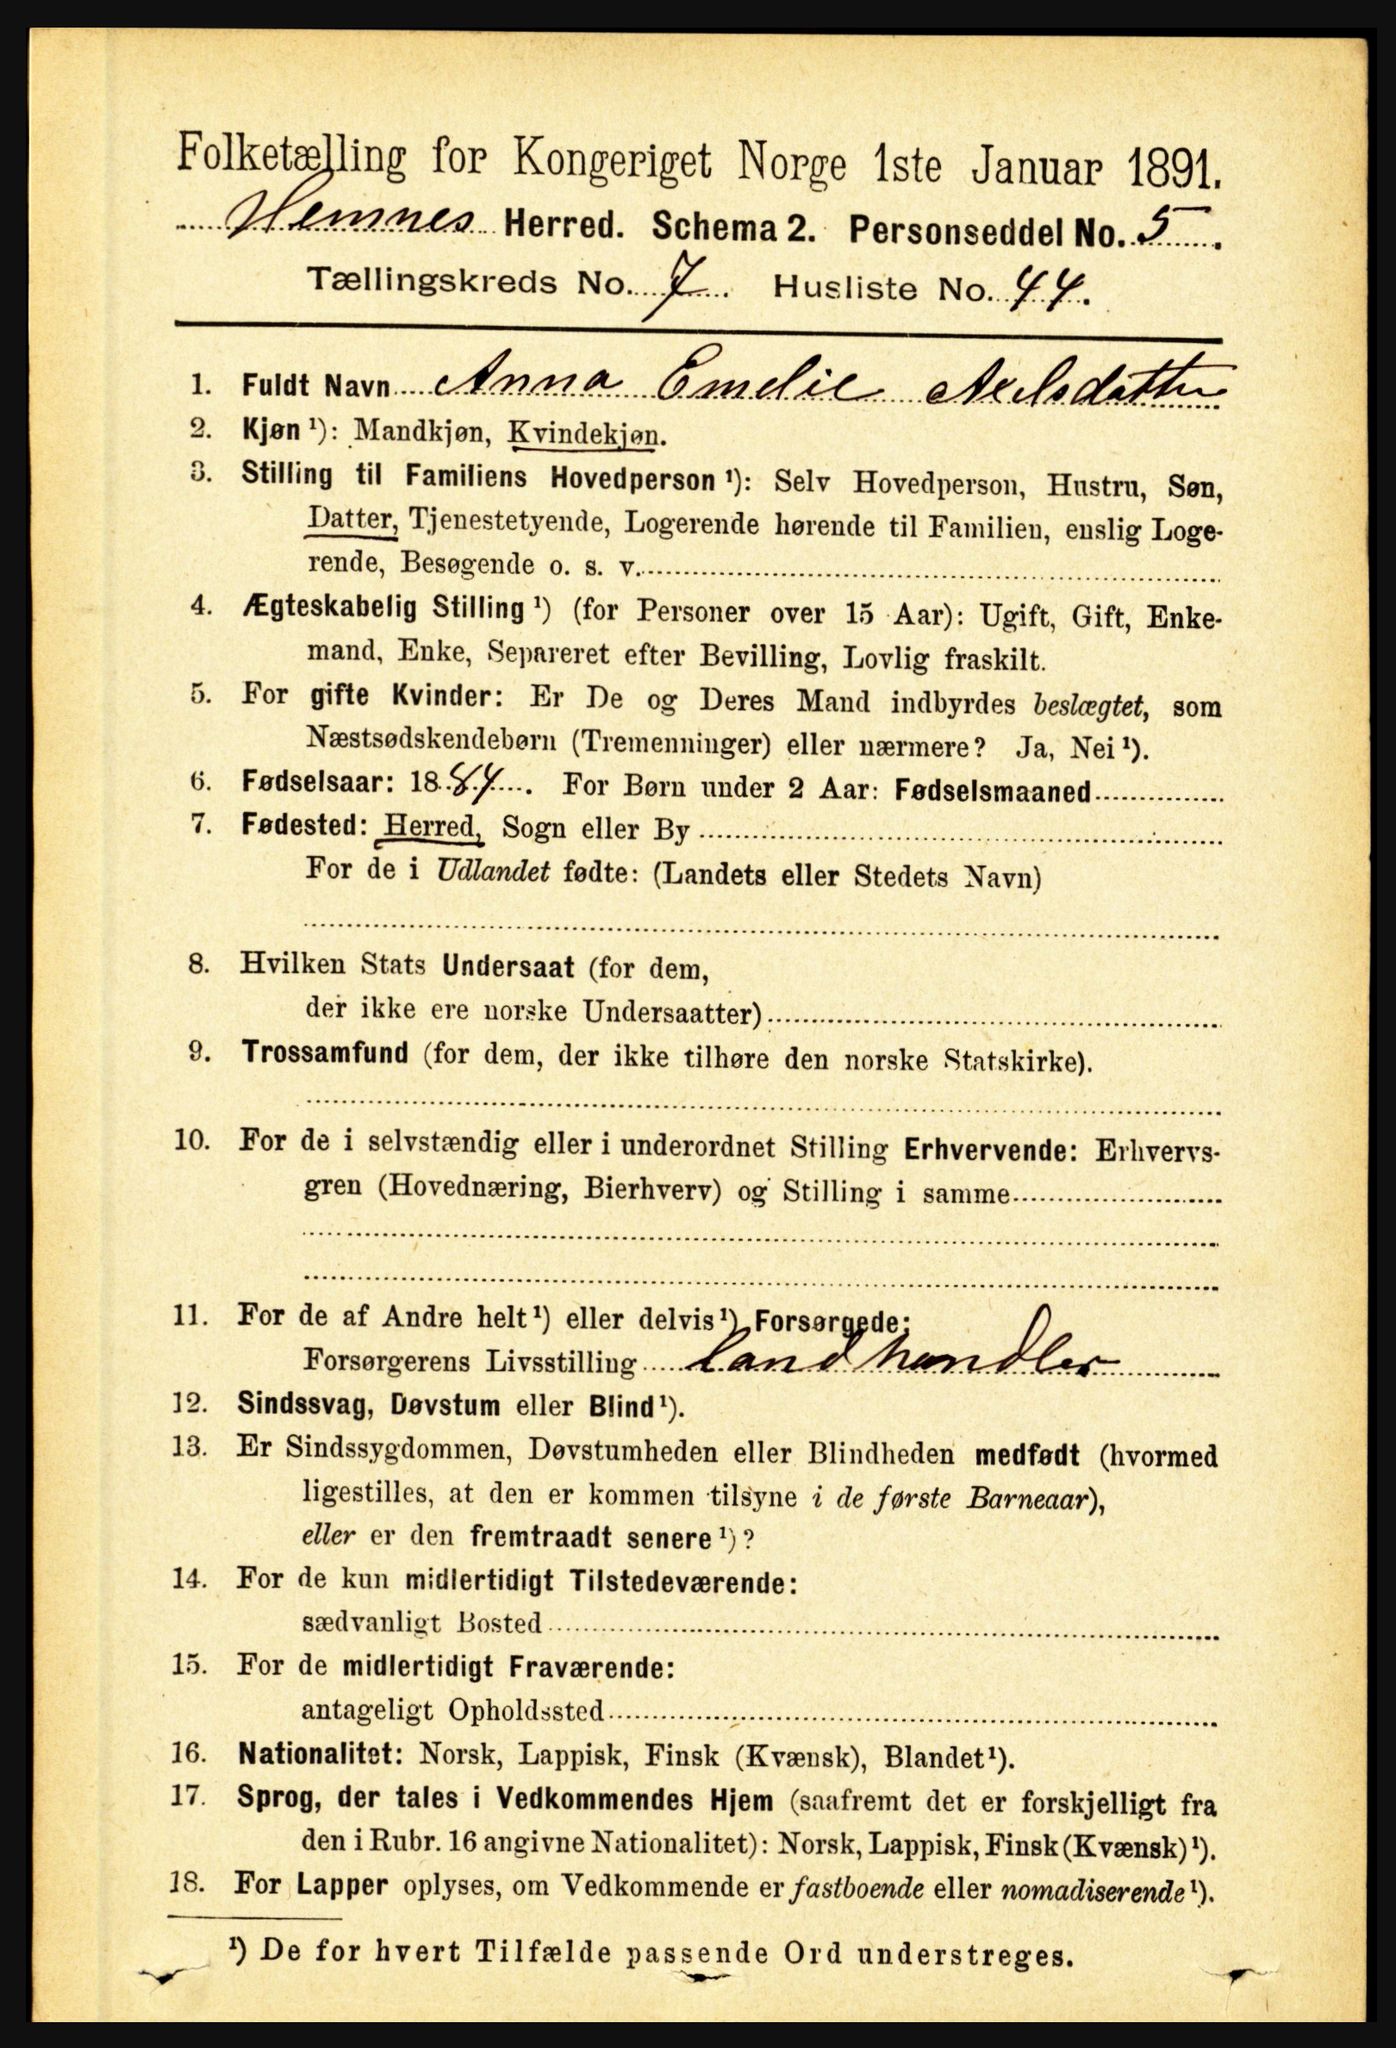 Folketælling for Kongeriget Norge 1ste Januar 1891.
Hemnes Herred. Schema 2. Personseddel No. 5.
Tællingskreds No. 7. Husliste No. 44.
1. Fuldt Navn Anna Emelie Axelsdatter
2. Kjøn ¹): Mandkjøn, Kvindekjøn.
3. Stilling til Familiens Hovedperson ¹): Selv Hovedperson, Hustru, Søn,
Datter, Tjenestetyende, Logerende hørende til Familien, enslig Loge-
rende, Besøgende o. s. v.
4. Ægteskabelig Stilling ¹) (for Personer over 15 Aar): Ugift, Gift, Enke-
mand, Enke, Separeret efter Bevilling, Lovlig fraskilt.
5. For gifte Kvinder: Er De og Deres Mand indbyrdes beslægtet, som
Næstsødskendebørn (Tremenninger) eller nærmere? Ja, Nei ¹).
6. Fødselsaar: 1884. For Børn under 2 Aar: Fødselsmaaned
7. Fødested: Herred, Sogn eller By
For de i Udlandet fødte: (Landets eller Stedets Navn)
8. Hvilken Stats Undersaat (for dem,
der ikke ere norske Undersaatter)
9. Trossamfund (for dem, der ikke tilhøre den norske Statskirke).
10. For de i selvstændig eller i underordnet Stilling Erhvervende: Erhvervs-
gren (Hovednæring, Bierhverv) og Stilling i samme
11. For de af Andre helt ¹) eller delvis ¹) Forsørgede:
Forsørgerens Livsstilling Landhandler
12. Sindssvag, Døvstum eller Blind ¹).
13. Er Sindssygdommen, Døvstumheden eller Blindheden medfødt (hvormed
ligestilles, at den er kommen tilsyne i de første Barneaar),
eller er den fremtraadt senere ¹)?
14. For de kun midlertidigt Tilstedeværende:
sædvanligt Bosted
15. For de midlertidigt Fraværende:
antageligt Opholdssted
16. Nationalitet: Norsk, Lappisk, Finsk (Kvænsk), Blandet ¹).
17. Sprog, der tales i Vedkommendes Hjem (saafremt det er forskjelligt fra
den i Rubr. 16 angivne Nationalitet): Norsk, Lappisk, Finsk (Kvænsk) ¹).
18. For Lapper oplyses, om Vedkommende er fastboende eller nomadiserende ¹).
¹) De for hvert Tilfælde passende Ord understreges.